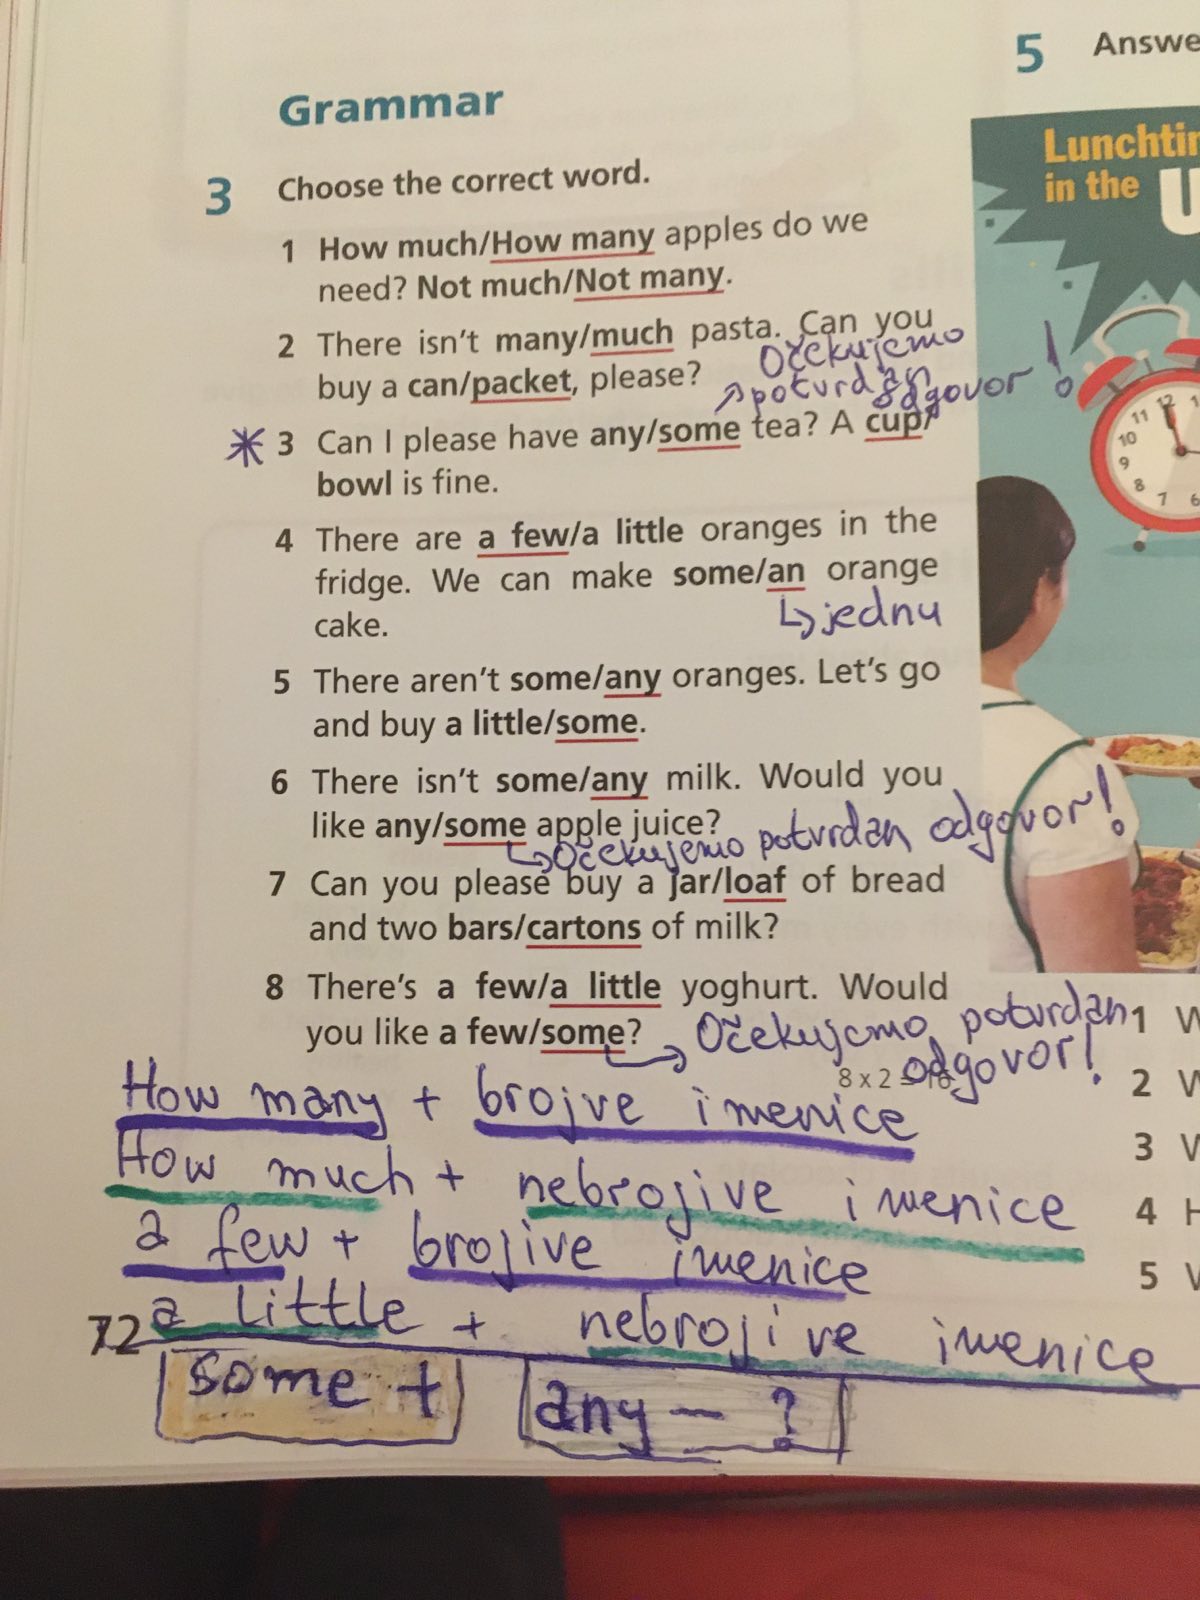 Grammar
3 Choose the correct word.
1 How much/How many apples do we
need? Not much/Not many.
2 There isn't many/much pasta. Can you
Očekujemo
buy a can/packet, please?
potvrdan
odgovor!
3 Can I please have any/some tea? A cup/
bowl is fine.
4 There are a few/a little oranges in the
fridge. We can make some/an orange
cake.
jednu
5 There aren't some/any oranges. Let's go
and buy a little/some.
6 There isn't some/any milk. Would you
like any/some apple juice?
Očekujemo potvrdan odgovor!
7 Can you please buy a jar/loaf of bread
and two bars/cartons of milk?
8 There's a few/a little yoghurt. Would
you like a few/some?
Očekujemo potvrdan
odgovor!
8 x 2 = 16
How many + brojve imenice
How much + nebrojive imenice
a few + brojive imenice
a little + nebrojive imenice
72
some +
any - ?
5 Answe
Lunchtin
in the U
12 1
11
10
9
8
7 6
1 W
2 W
3 W
4 H
5 W